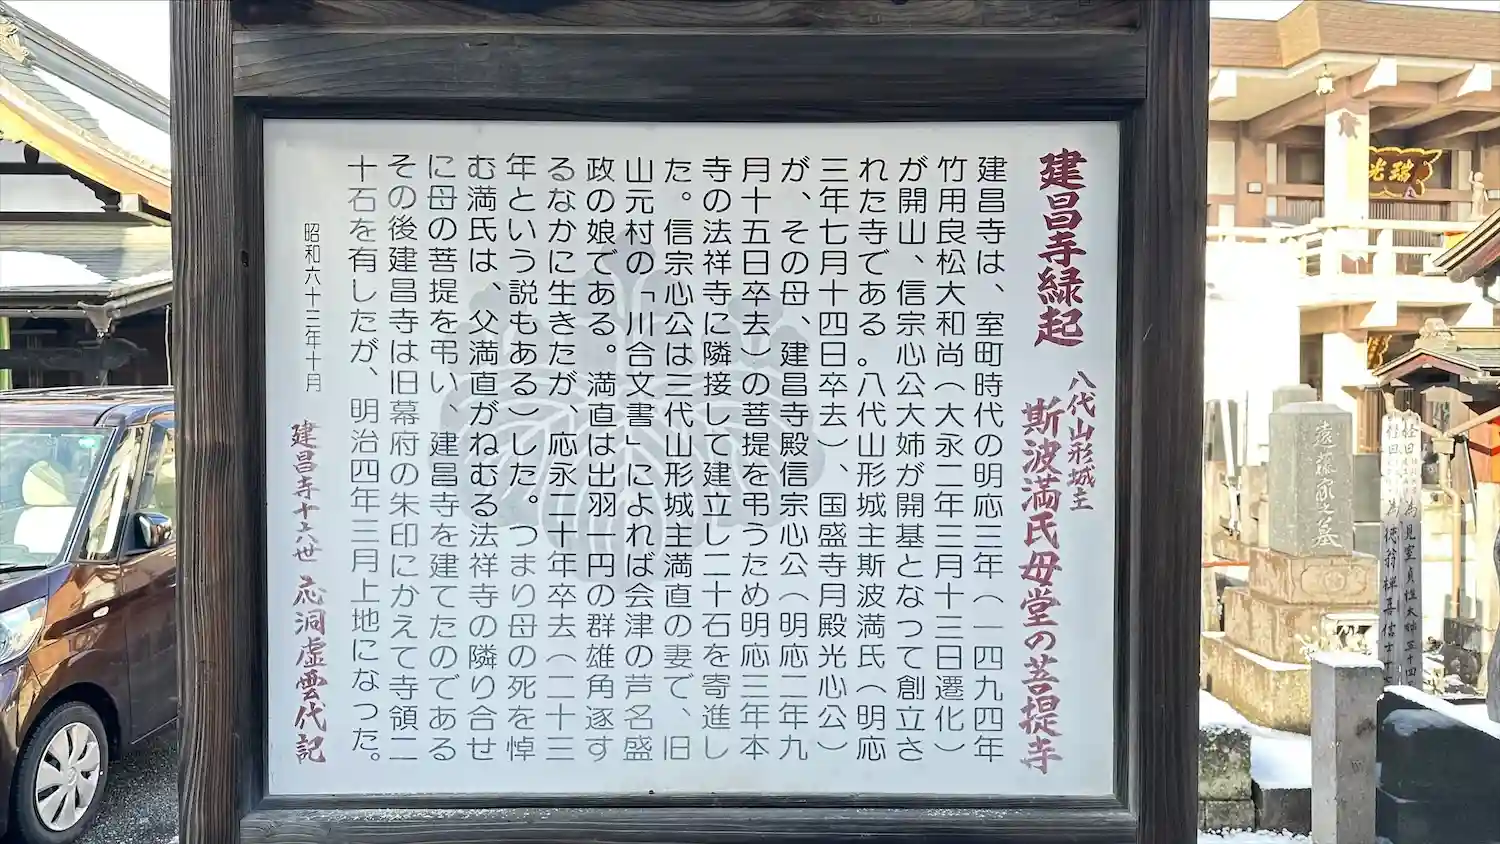 建昌寺縁起
八代山形城主
斯波満氏母堂の菩提寺
建昌寺は、室町時代の明応三年（一四九四年
竹用良松大和尚（大永二年三月十三日遷化）
が開山、信宗心公大姉が開基となつて創立さ
れた寺である。八代山形城主斯波満氏（明応
三年七月十四日卒去）、国盛寺月殿光心公）
が、その母、建昌寺殿信宗心公（明応二年九
月十五日卒去）の菩提を弔うため明応三年本
寺の法祥寺に隣接して建立し二十石を寄進し
た。信宗心公は三代山形城主満直の妻で、旧
山元村の「川合文書」によれば会津の芦名盛
政の娘である。満直は出羽一円の群雄角逐す
るなかに生きたが、応永二十年卒去（二十三
年という説もある）した。つまり母の死を悼
む満氏は、父満直がねむる法祥寺の隣り合せ
に母の菩提を弔い、建昌寺を建てたのである
その後建昌寺は旧幕府の朱印にかえて寺領二
十石を有したが、明治四年三月上地になった。
昭和六十三年十月
建昌寺十六世 応洞虚雲代記
瑞光
遠藤家之墓